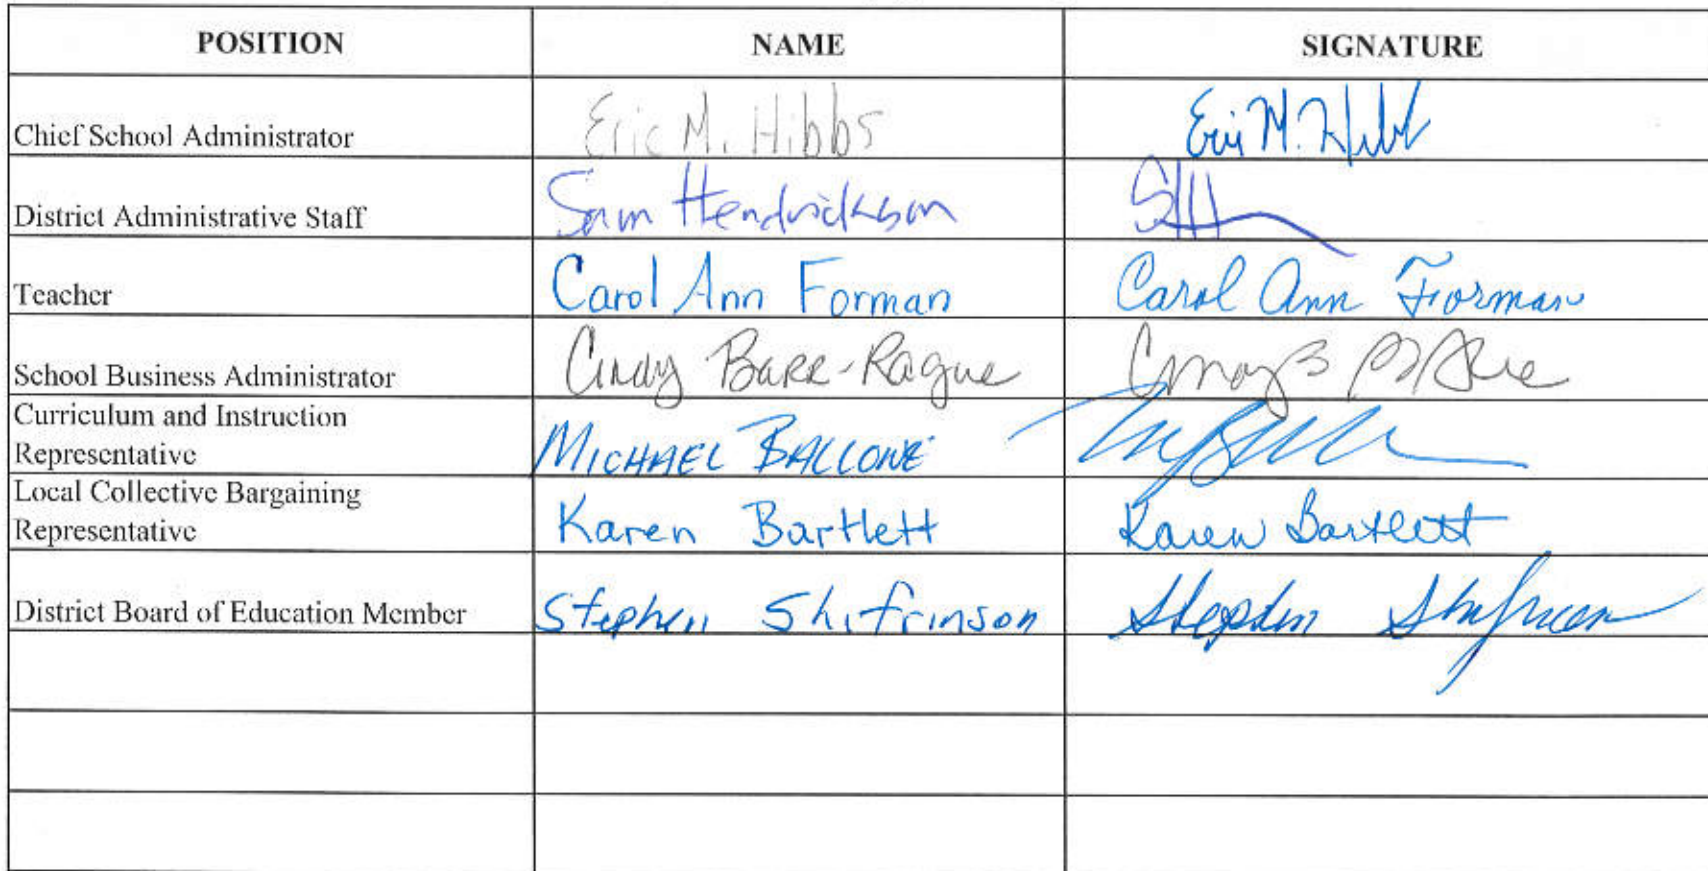 POSITION NAME SIGNATURE
Chief School Administrator Eric M. Hibbs Eric M. Hibb
District Administrative Staff Sam Hendrickson SH
Teacher Carol Ann Forman Carol Ann Forman
School Business Administrator Cindy Barr-Rague
Curriculum and Instruction
Representative MICHAEL BALLONE
Local Collective Bargaining
Representative Karen Bartlett Karen Bartlett
District Board of Education Member Stephen Shifrinson Stephen